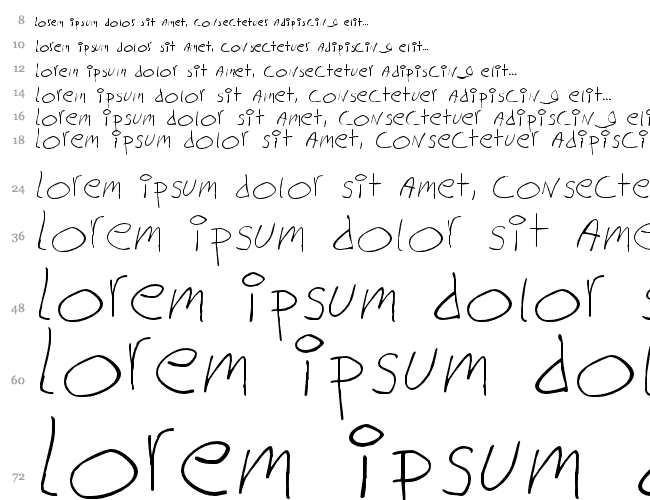 8 lorem ipsum dolor sit Amet, Consectetuer Adipiscing elit...
10 lorem ipsum dolor sit Amet, Consectetuer Adipiscing elit...
12 lorem ipsum dolor sit Amet, Consectetuer Adipiscing elit...
14 lorem ipsum dolor sit Amet, Consectetuer Adipiscing elit...
16 lorem ipsum dolor sit Amet, Consectetuer Adipiscing eli
18 lorem ipsum dolor sit Amet, Consectetuer Adipisci
24 lorem ipsum dolor sit Amet, Consecte
36 lorem ipsum dolor sit Ame
48 lorem ipsum dolor s
60 lorem ipsum do
72 lorem ipsum